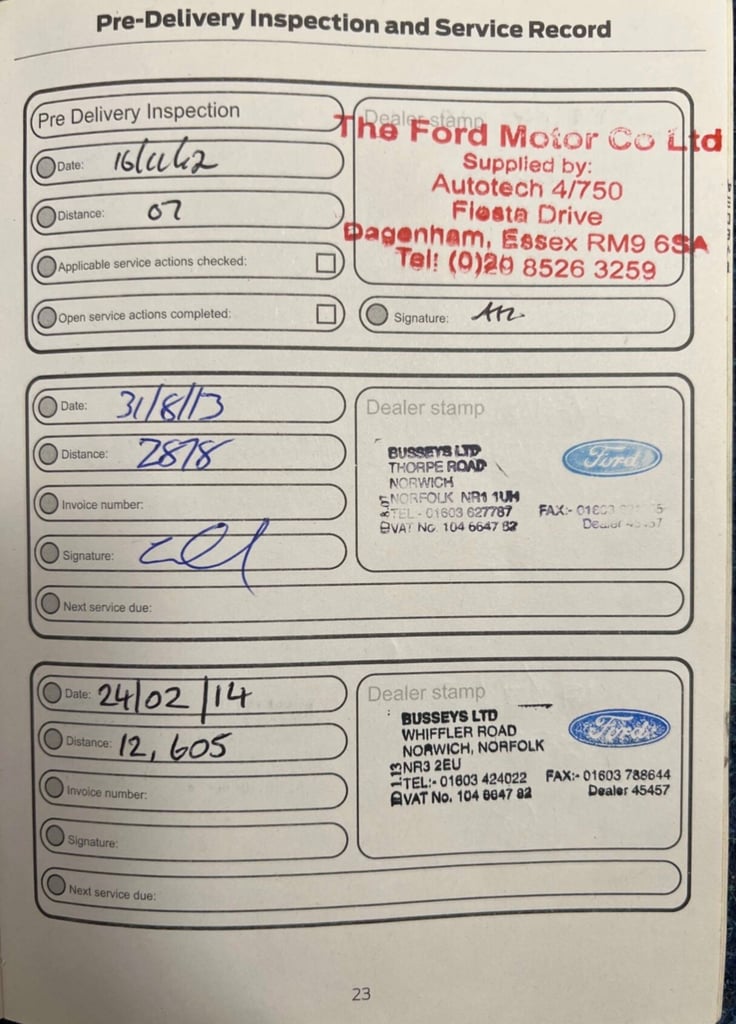 Pre-Delivery Inspection and Service Record
Pre Delivery Inspection
Date: 16/11/12
Distance: 07
Applicable service actions checked:
Open service actions completed:
Dealer stamp
The Ford Motor Co Ltd
Supplied by:
Autotech 4/750
Fiesta Drive
Dagenham, Essex RM9 6SA
Tel: (0)20 8526 3259
Signature:
Date: 31/8/13
Distance: 2878
Invoice number:
Signature:
Next service due:
Dealer stamp
BUSSEYS LTD
THORPE ROAD
NORWICH
NORFOLK NR1 1UH
TEL - 01603 627787 FAX:- 01603
VAT No. 104 6647 82 Dealer 45457
Ford
Date: 24/02/14
Distance: 12,605
Invoice number:
Signature:
Next service due:
Dealer stamp
BUSSEYS LTD
WHIFFLER ROAD
NORWICH, NORFOLK
NR3 2EU
TEL:- 01603 424022 FAX:- 01603 788644
VAT No. 104 6647 82 Dealer 45457
Ford
23